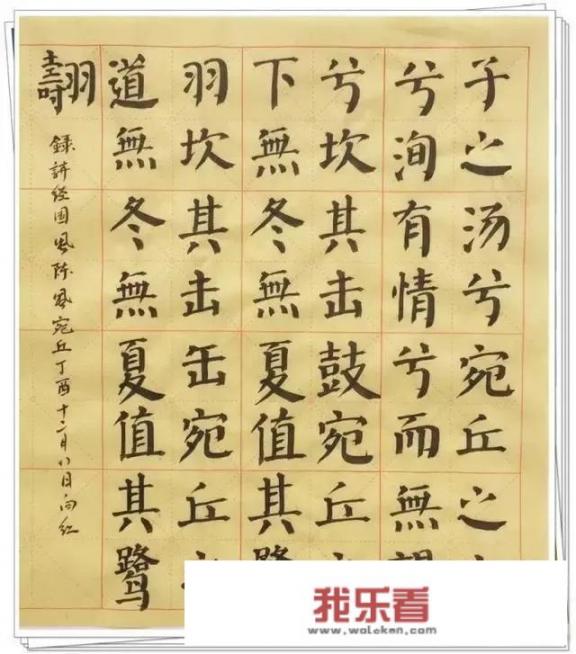 子之汤兮宛丘之
兮洵有情兮而無望
兮坎其击鼓宛丘
下無冬無夏值其鹭
羽坎其击缶宛丘
道無冬無夏值其鹭
翿
録诗经国风陈风宛丘丁酉十二月八日向红
我乐看
www.woleken.com